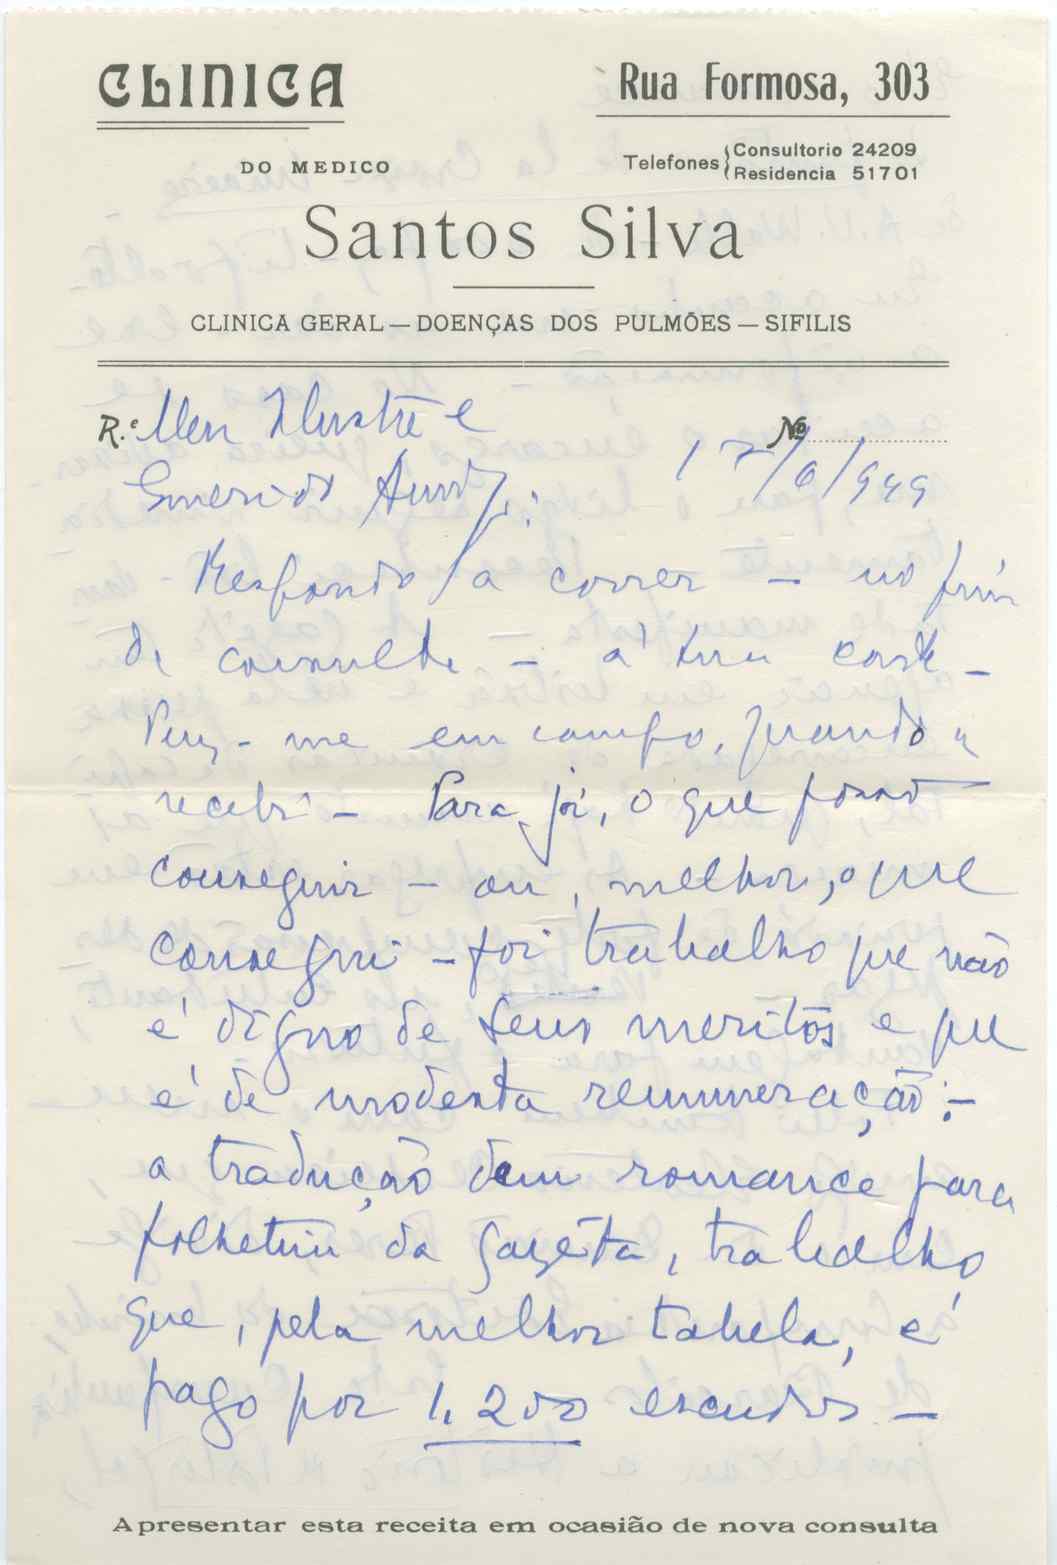 CLINICA
Rua Formosa, 303
DO MEDICO
Telefones { Consultorio 24209
Residencia 51701
Santos Silva
CLINICA GERAL — DOENÇAS DOS PULMÕES — SIFILIS
R.e Meu Ilustre e
Nº
17/6/949
Respondo a correr — no fim
da consulta — á sua carta —
Puz-me em campo, quando a
recebi — Para já, o que posso
conseguir — ou, melhor, o que
consegui — foi trabalho que não
é digno de seus meritos e que
é de modesta remuneração: —
a tradução dum romance para
folhetim da Gazeta, trabalho
que, pela melhor tabela, é
pago por 1.200 escudos —
Apresentar esta receita em ocasião de nova consulta